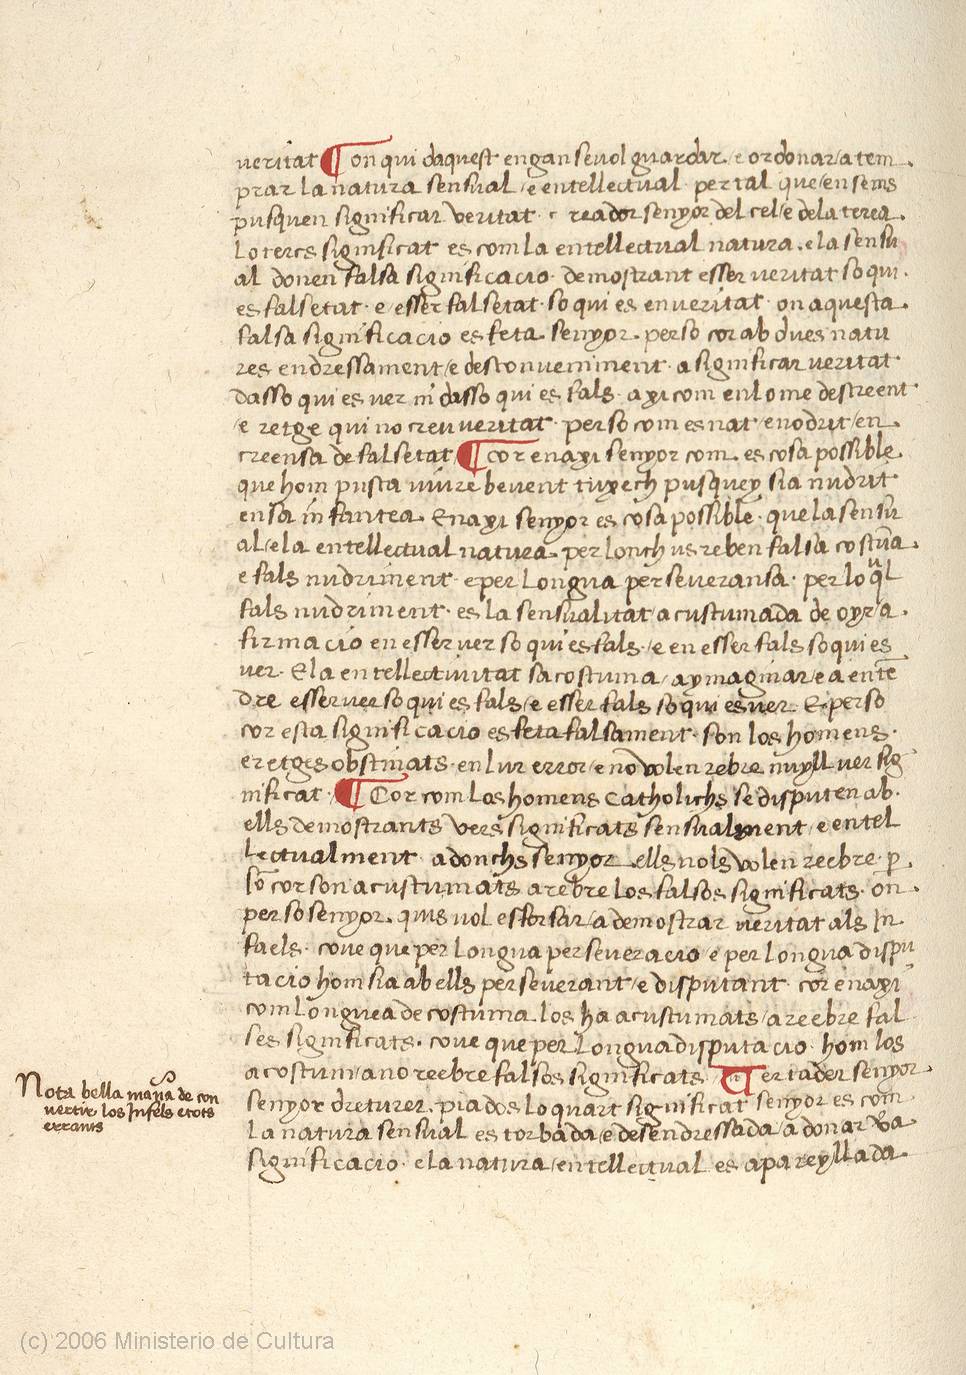 veritat ¶ on qui daquest engan se vol guardar. e ordonar/a tem
prar la natura sensual /e entellectual per tal que/en sems
pusquen significar veritat · creador senyor del cel/e dela terra.
Lo terçs significat es com la entellectual natura. e la sensu
al donen falsa significacio · demostrant esser veritat so qui.
es falsetat · e/esser falsetat · so qui es en veritat · on aquesta
falsa significacio es feta senyor. per so cor ab dues natu
res endressament/e desconveniment · a significar veritat
dasso qui es ver ni dasso qui es fals · axi com en lome descreent
/e retge qui no creu veritat · per so com es nat/enodrit/en
creensa de falsetat ¶ cor enaxi senyor com. es cosa possible
que hom pusta viure bevent tuxech pus quey sia nudrit
en sa infantea. Enaxi senyor es cosa possible · que la sensu
al/e la entellectual natura. per lonch us reben falsa costūa.
e fals nudriment · e per Longua perseveransa · per lo ql
fals nudriment · es la sensualitat acustumada de oyr/a.
firmacio en esser ver so qui es fals · /e en esser fals so qui es
ver · E la entellectivitat sa costuma/ a ymaginar/e a entē
dre esser ver so qui es fals/e esser fals so qui es ver. E perso
cor esta significacio es feta falsament · son los homens ·
eretges obstinats · en lur error/e no volen rebre nuyll ver sig
nificat · ¶ Cor com Los homens Catholichs se disputen ab.
ells demostrants vers significats sensualment /e entel
Lectualment · adonchs senyor ells nols volen reebre · p
sō cor son acustumats a rebre los falsos significats · on.
per so senyor. quis vol esforsar/a demostrar veritat als In
faels · cove que per Longua perseveracio e per longua dispu
tacio hom sia ab ells perseverant/e disputant · cor enaxi
com Longuea de costuma. los ha acustumats/a reebre fal
ses significats. cove que per Longua disputacio · hom los
acostum/a no reebre falsos significats · Vertader senyor.
senyor dreturer. piados lo quart significat senyor es com
La natura sensual es torbada/e desendressada/a donar va
significacio · e la natura/entellectual es apareyllada.
Nota bella mana de con
vertir los Infels e tots
errants
(c) 2006 Ministerio de Cultura